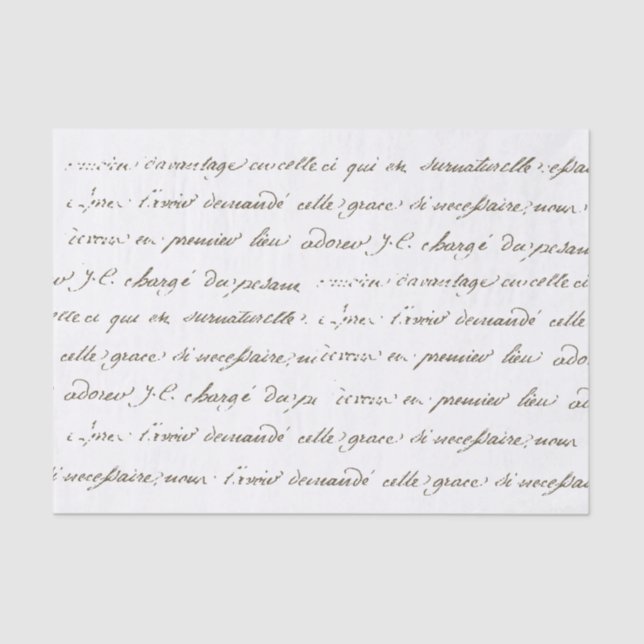 davantage en celle ci qui en surnaturelle
demandé cette grace si necessaire, nous
en premier lieu adorer J.C. chargé du pesan
J.C. chargé du pesam davantage en celle ci
elle ci qui en surnaturelle. demandé cette
cette grace si necessaire, n en premier lieu ado
adorer J.C. chargé du p en premier lieu ad
demandé cette grace si necessaire, nous
si necessaire, nous demandé cette grace si necessai